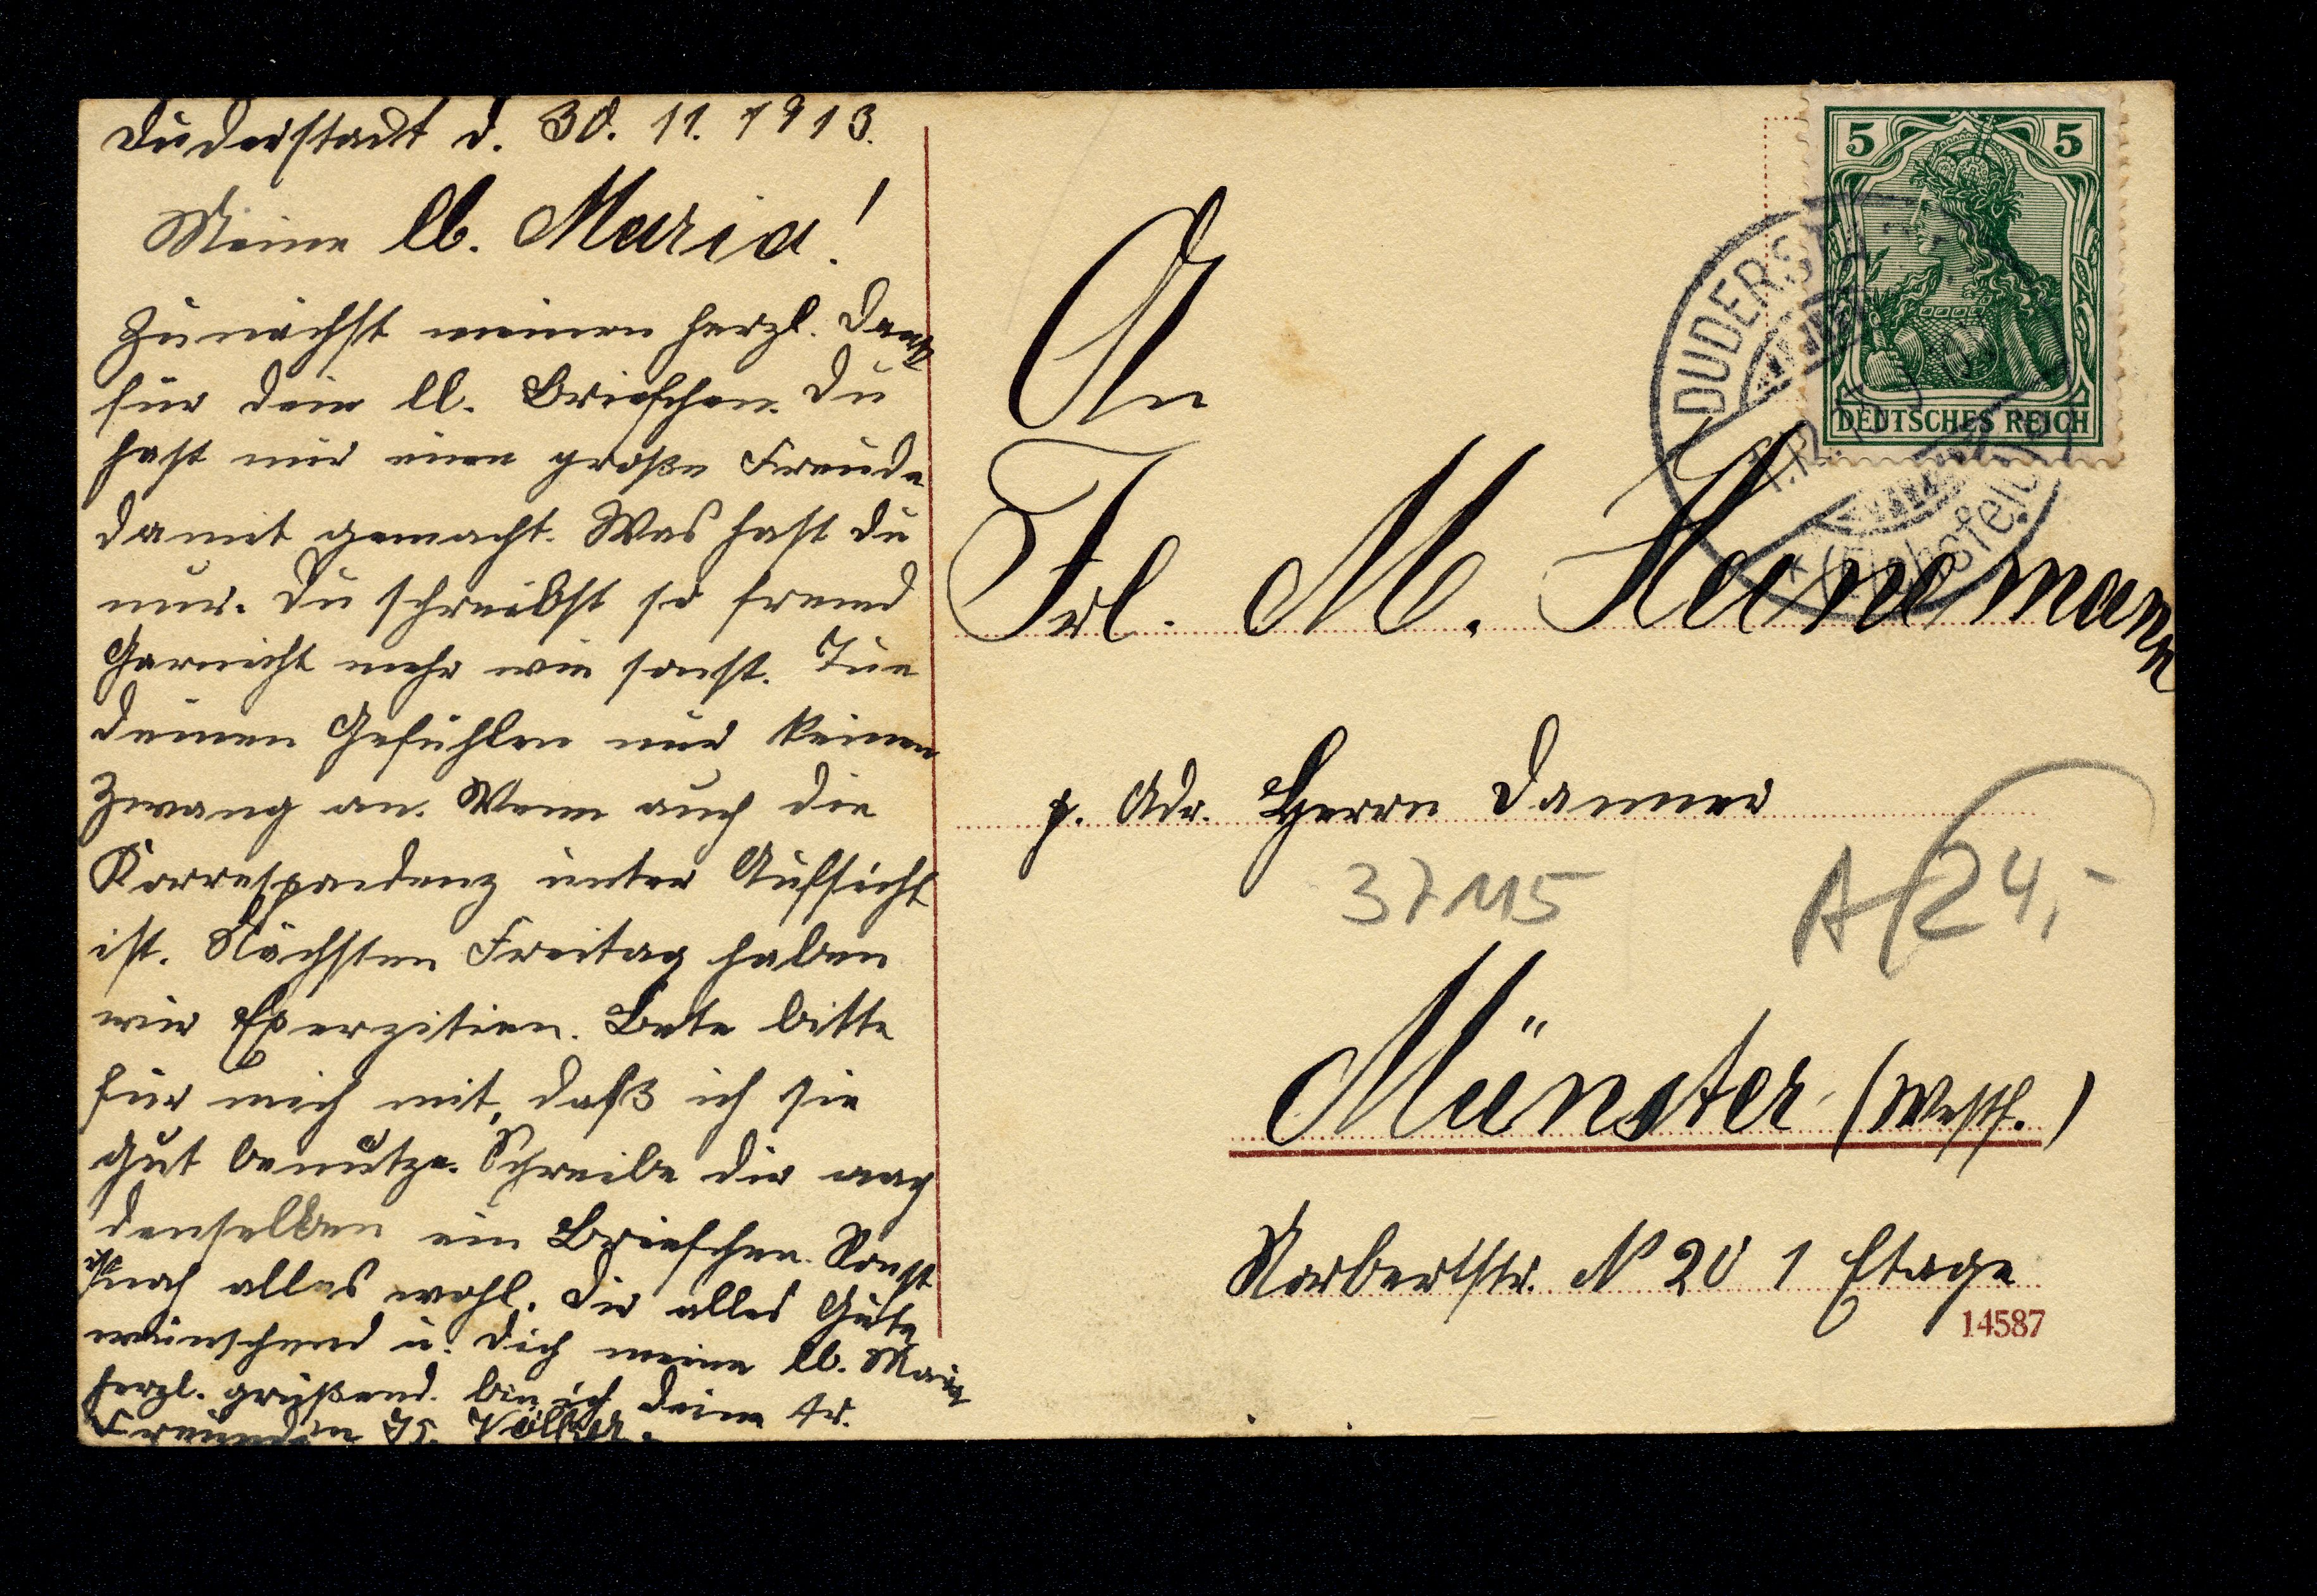 Duderstadt d. 30. 11. 1913.
Meine lb. Maria!
Zunächst meinen herzl. Dank
für dein lb. Briefchen. Du
hast mir eine große Freude
damit gemacht. Was hast du
nur. Du schreibst so fremd
Garnicht mehr wie sonst. Tue
deinen Gefühlen nur keinen
Zwang an. Wenn auch die
Korrespondenz unter Aufsicht
ist. Nächsten Freitag haben
wir Exerzitien. Bete bitte
für mich mit, daß ich sie
gut benutze. Schreibe dir nach
denselben ein Briefchen. Sonst
ist noch alles wohl. Dir alles Gute
wünschend u. dich meine lb. Maria
herzl. grüßend. bin ich deine tr.
Freundin
An
Frl. M. Heinemann
p. Adr. Herrn Danner
37115
A 24,-
Münster (Westf.)
Norbertstr. N 20 1 Etage
14587
5 5
DEUTSCHES REICH
DUDERST
(Eichsfeld)